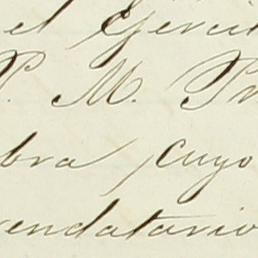 el Ejercit
P. M. Pr
bra cuyo
rendatario